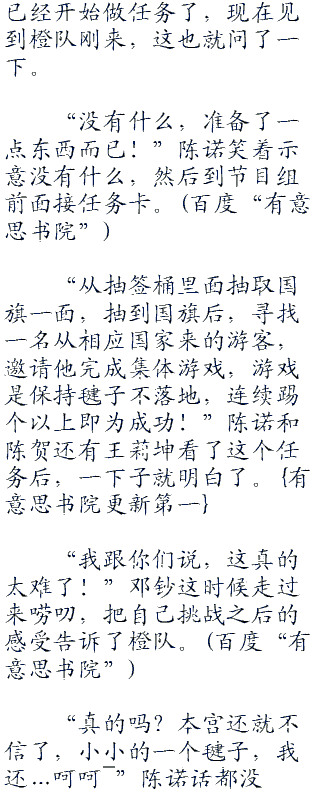 已经开始做任务了，现在见
到橙队刚来，这也就问了一
下。
“没有什么，准备了一
点东西而已！”陈诺笑着示
意没有什么，然后到节目组
前面接任务卡。(百度“有意
思书院”)
“从抽签桶里面抽取国
旗一面，抽到国旗后，寻找
一名从相应国家来的游客，
邀请他完成集体游戏，游戏
是保持毽子不落地，连续踢
个以上即为成功！”陈诺和
陈贺还有王莉坤看了这个任
务后，一下子就明白了。{有
意思书院更新第一}
“我跟你们说，这真的
太难了！”邓钞这时候走过
来唠叨，把自己挑战之后的
感受告诉了橙队。(百度“有
意思书院”)
“真的吗？本宫还就不
信了，小小的一个毽子，我
还…呵呵¯”陈诺话都没